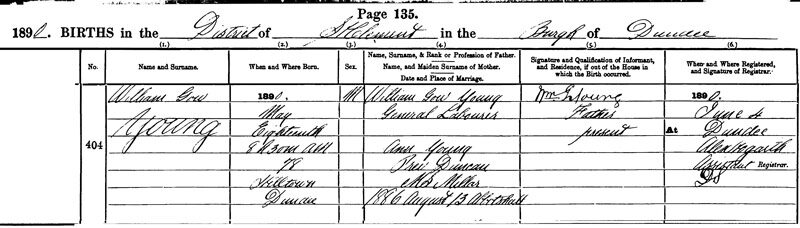 Page 135.
1890. BIRTHS in the District of St Clement in the Burgh of Dundee
(1.) (2.) (3.) (4.) (5.) (6.)
No.
Name and Surname.
When and Where Born.
Sex.
Name, Surname, & Rank or Profession of Father.
Name, and Maiden Surname of Mother.
Date and Place of Marriage.
Signature and Qualification of Informant,
and Residence, if out of the House in
which the Birth occurred.
When and Where Registered,
and Signature of Registrar.
404
William Gow
Young
1890.
May
Eighteenth
8h 30m AM
78
Hilltown
Dundee
M
William Gow Young
General Labourer
Ann Young
Prev. Duncan
M.S. Millar
1886 August 13
Wm G Young
Father
present
1890.
June 4
At Dundee
Assistant Registrar.